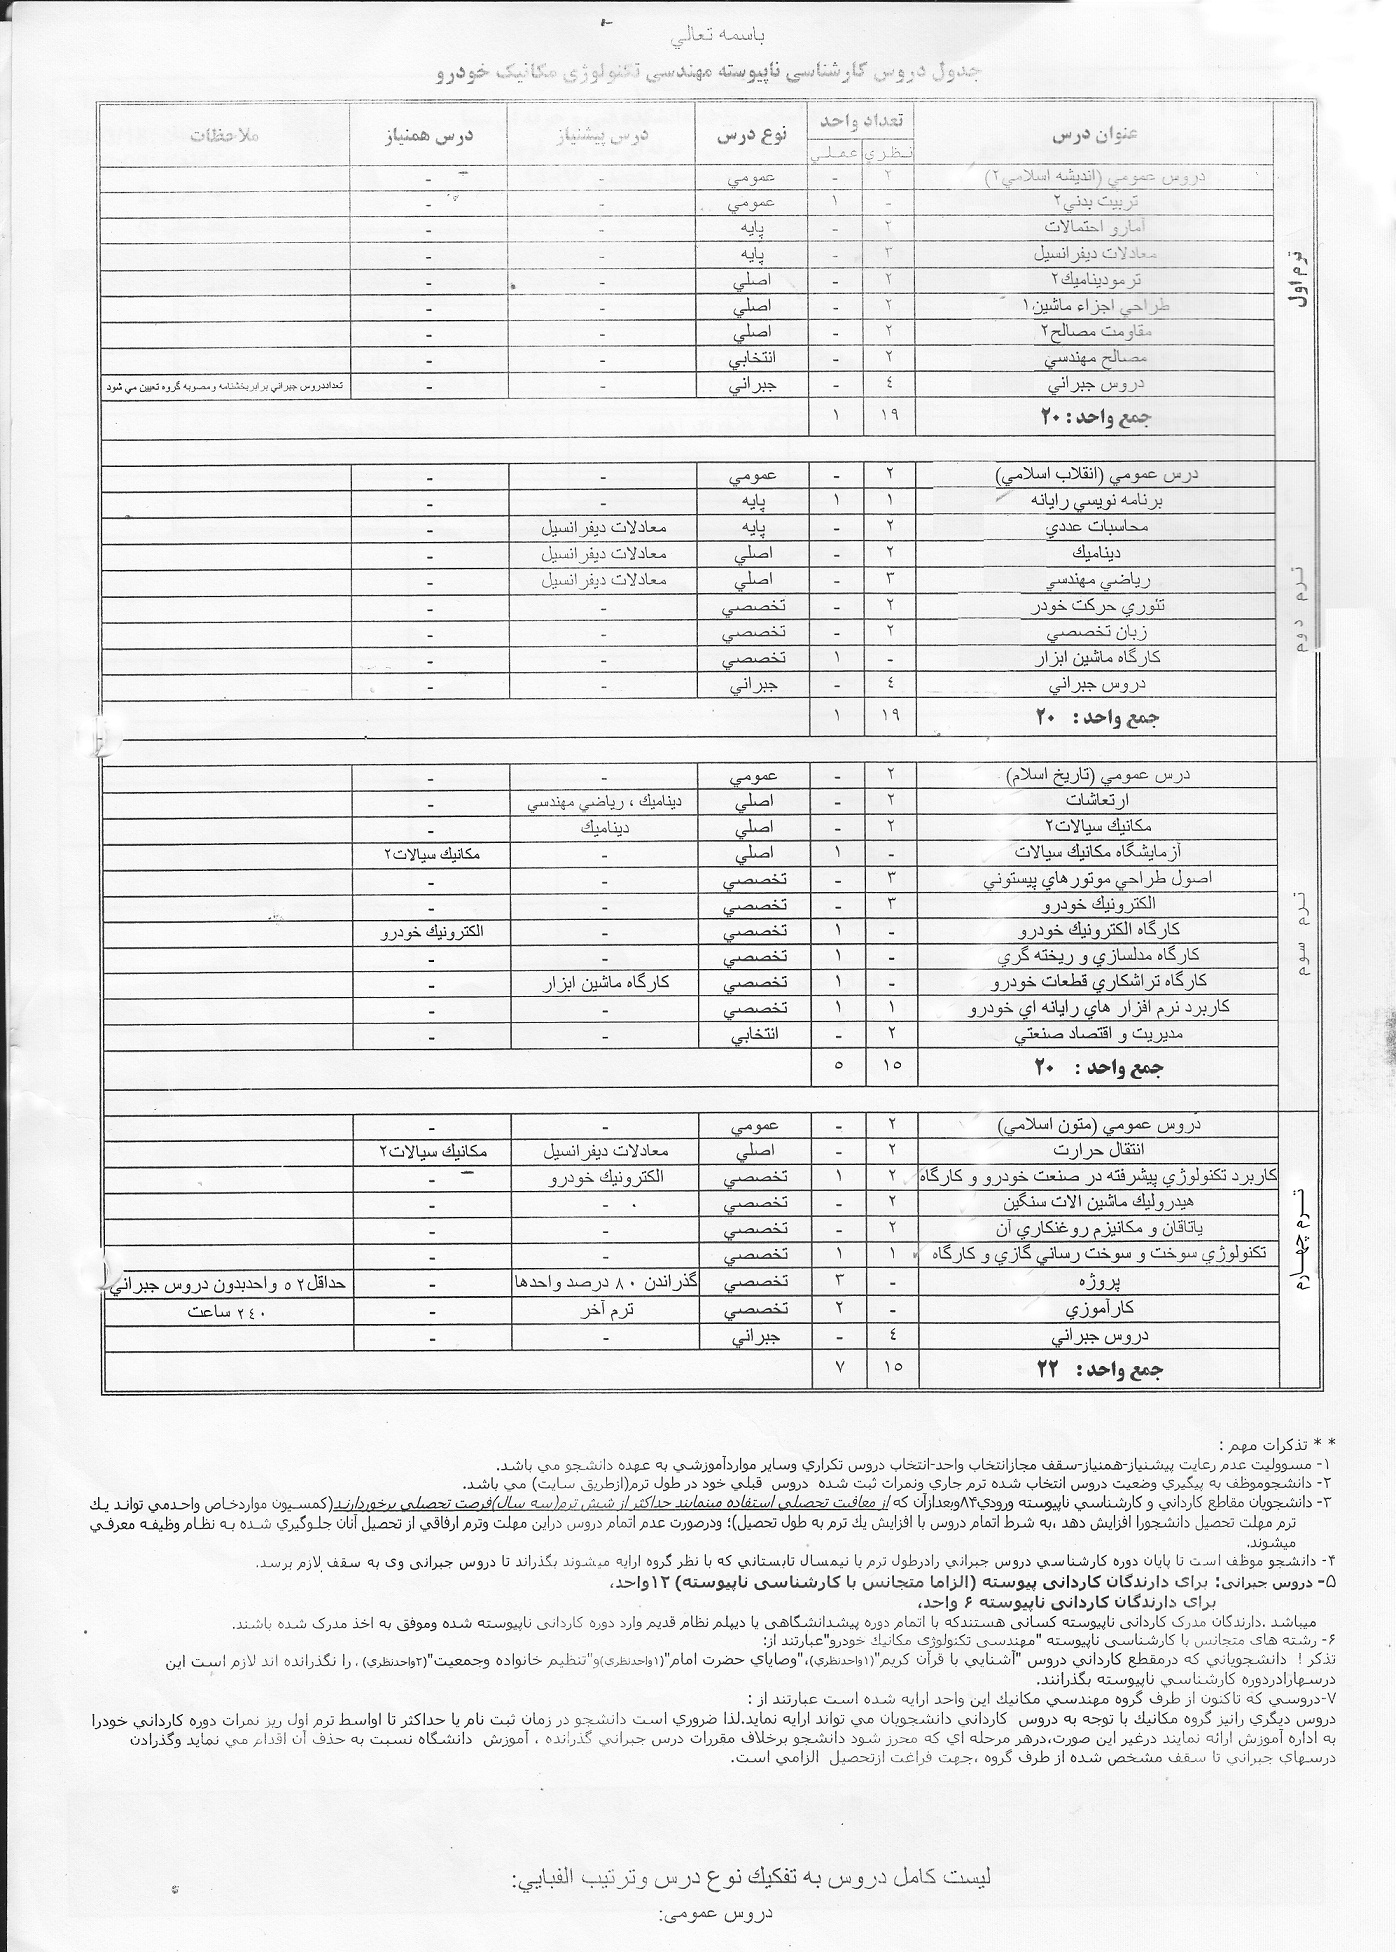 باسمه تعالي
جدول دروس کارشناسی ناپیوسته مهندسی تکنولوژی مکانیک خودرو
عنوان درس تعداد واحد نوع درس درس پیشنیاز درس همنیاز ملاحظات
نظري عملي
ترم اول
دروس عمومي (انديشه اسلامي۲) ۲ - عمومي - -
تربيت بدني۲ - ۱ عمومي - -
آمارو احتمالات ۲ - پايه - -
معادلات ديفرانسيل ۳ - پايه - -
ترموديناميك۲ ۲ - اصلي - -
طراحي اجزاء ماشين۱ ۲ - اصلي - -
مقاومت مصالح۲ ۲ - اصلي - -
مصالح مهندسي ۲ - انتخابي - -
دروس جبراني ٤ - جبراني - - تعداددروس جبراني برابربخشنامه ومصوبه گروه تعيين مي شود
جمع واحد : ۲۰ ۱۹ ۱
ترم دوم
درس عمومي (انقلاب اسلامي) ۲ - عمومي - -
برنامه نويسي رايانه ۱ ۱ پايه - -
محاسبات عددي ۲ - پايه معادلات ديفرانسيل -
ديناميك ۲ - اصلي معادلات ديفرانسيل -
رياضي مهندسي ۳ - اصلي معادلات ديفرانسيل -
تئوري حركت خودر ۲ - تخصصي - -
زبان تخصصي ۲ - تخصصي - -
كارگاه ماشين ابزار - ۱ تخصصي - -
دروس جبراني ٤ - جبراني - -
جمع واحد : ۲۰ ۱۹ ۱
ترم سوم
درس عمومي (تاريخ اسلام) ۲ - عمومي - -
ارتعاشات ۲ - اصلي ديناميك ، رياضي مهندسي -
مكانيك سيالات۲ ۲ - اصلي ديناميك -
آزمايشگاه مكانيك سيالات - ۱ اصلي - مكانيك سيالات۲
اصول طراحي موتورهاي پيستوني ۳ - تخصصي - -
الكترونيك خودرو ۳ - تخصصي - -
كارگاه الكترونيك خودرو - ۱ تخصصي - الكترونيك خودرو
كارگاه مدلسازي و ريخته گري - ۱ تخصصي - -
كارگاه تراشكاري قطعات خودرو - ۱ تخصصي كارگاه ماشين ابزار -
كاربرد نرم افزار هاي رايانه اي خودرو ۱ ۱ تخصصي - -
مديريت و اقتصاد صنعتي ۲ - انتخابي - -
جمع واحد : ۲۰ ۱۵ ۵
ترم چهارم
دروس عمومي (متون اسلامي) ۲ - عمومي - -
انتقال حرارت ۲ - اصلي معادلات ديفرانسيل مكانيك سيالات۲
كاربرد تكنولوژي پيشرفته در صنعت خودرو و كارگاه ۲ ۱ تخصصي الكترونيك خودرو -
هيدروليك ماشين الات سنگين ۲ - تخصصي - -
ياتاقان و مكانيزم روغنكاري آن ۲ - تخصصي - -
تكنولوژي سوخت و سوخت رساني گازي و كارگاه ۱ ۱ تخصصي - -
پروژه - ۳ تخصصي گذراندن ۸۰ درصد واحدها - حداقل۵۲ واحدبدون دروس جبراني
كارآموزي - ۲ تخصصي ترم آخر - ۲٤۰ ساعت
دروس جبراني ٤ - جبراني - -
جمع واحد : ۲۲ ۱۵ ۷
* * تذكرات مهم :
۱- مسووليت عدم رعايت پيشنياز-همنياز-سقف مجازانتخاب واحد-انتخاب دروس تكراري وساير مواردآموزشي به عهده دانشجو مي باشد.
۲- دانشجوموظف به پيگيري وضعيت دروس انتخاب شده ترم جاري ونمرات ثبت شده دروس قبلي خود در طول ترم(ازطريق سايت) مي باشد.
۳- دانشجويان مقاطع كارداني و كارشناسي ناپيوسته ورودي۸۴وبعدازآن كه از معافيت تحصيلي استفاده مينمايند حداكثر از شش ترم(سه سال)فرصت تحصيلي برخوردارند(كمسيون مواردخاص واحدمي تواند يك
ترم مهلت تحصيل دانشجورا افزايش دهد ،به شرط اتمام دروس با افزايش يك ترم به طول تحصيل)؛ ودرصورت عدم اتمام دروس دراين مهلت وترم ارفاقي از تحصيل آنان جلوگيري شده به نظام وظيفه معرفي
ميشوند.
۴- دانشجو موظف است تا پايان دوره كارشناسي دروس جبراني رادرطول ترم يا نيمسال تابستاني كه با نظر گروه ارايه ميشوند بگذراند تا دروس جبرانی وی به سقف لازم برسد.
۵- دروس جبرانی: برای دارندگان کاردانی پیوسته (الزاما متجانس با کارشناسی ناپیوسته) ۱۲واحد،
برای دارندگان کاردانی ناپیوسته ۶ واحد،
میباشد .دارندگان مدرک کاردانی ناپیوسته کسانی هستندکه با اتمام دوره پیشدانشگاهی یا دیپلم نظام قدیم وارد دوره کاردانی ناپیوسته شده وموفق به اخذ مدرک شده باشند.
۶- رشته های متجانس با کارشناسی ناپیوسته "مهندسی تکنولوژی مکانیک خودرو"عبارتند از:
تذكر ! دانشجوياني كه درمقطع كارداني دروس "آشنايي با قرآن كريم"(۱واحدنظري)،"وصاياي حضرت امام"(۱واحدنظري)و"تنظيم خانواده وجمعيت"(۲واحدنظري) ، را نگذرانده اند لازم است اين
درسهارادردوره كارشناسي ناپيوسته بگذرانند.
۷-دروسي كه تاكنون از طرف گروه مهندسي مكانيك اين واحد ارايه شده است عبارتند از :
دروس ديگري رانيز گروه مكانيك با توجه به دروس كارداني دانشجويان مي تواند ارايه نمايد.لذا ضروري است دانشجو در زمان ثبت نام يا حداكثر تا اواسط ترم اول ريز نمرات دوره كارداني خودرا
به اداره آموزش ارائه نمايند درغير اين صورت،درهر مرحله اي كه محرز شود دانشجو برخلاف مقررات درس جبراني گذرانده ، آموزش دانشگاه نسبت به حذف آن اقدام مي نمايد وگذردن
درسهاي جبراني تا سقف مشخص شده از طرف گروه ،جهت فراغت ازتحصيل الزامي است.
ليست كامل دروس به تفكيك نوع درس وترتيب الفبايي:
دروس عمومی: